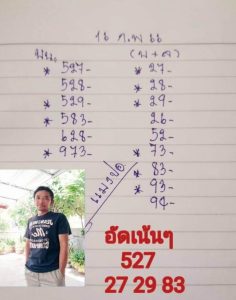 16 ก.พ 66
บน (บ+ล)
* 527- * 27-
528- * 28-
* 529- * 29-
* 583- 26-
628- 52-
* 973- * 73-
* 83-
* 93-
94-
แมงปอ
อัดเน้นๆ
527
27 29 83